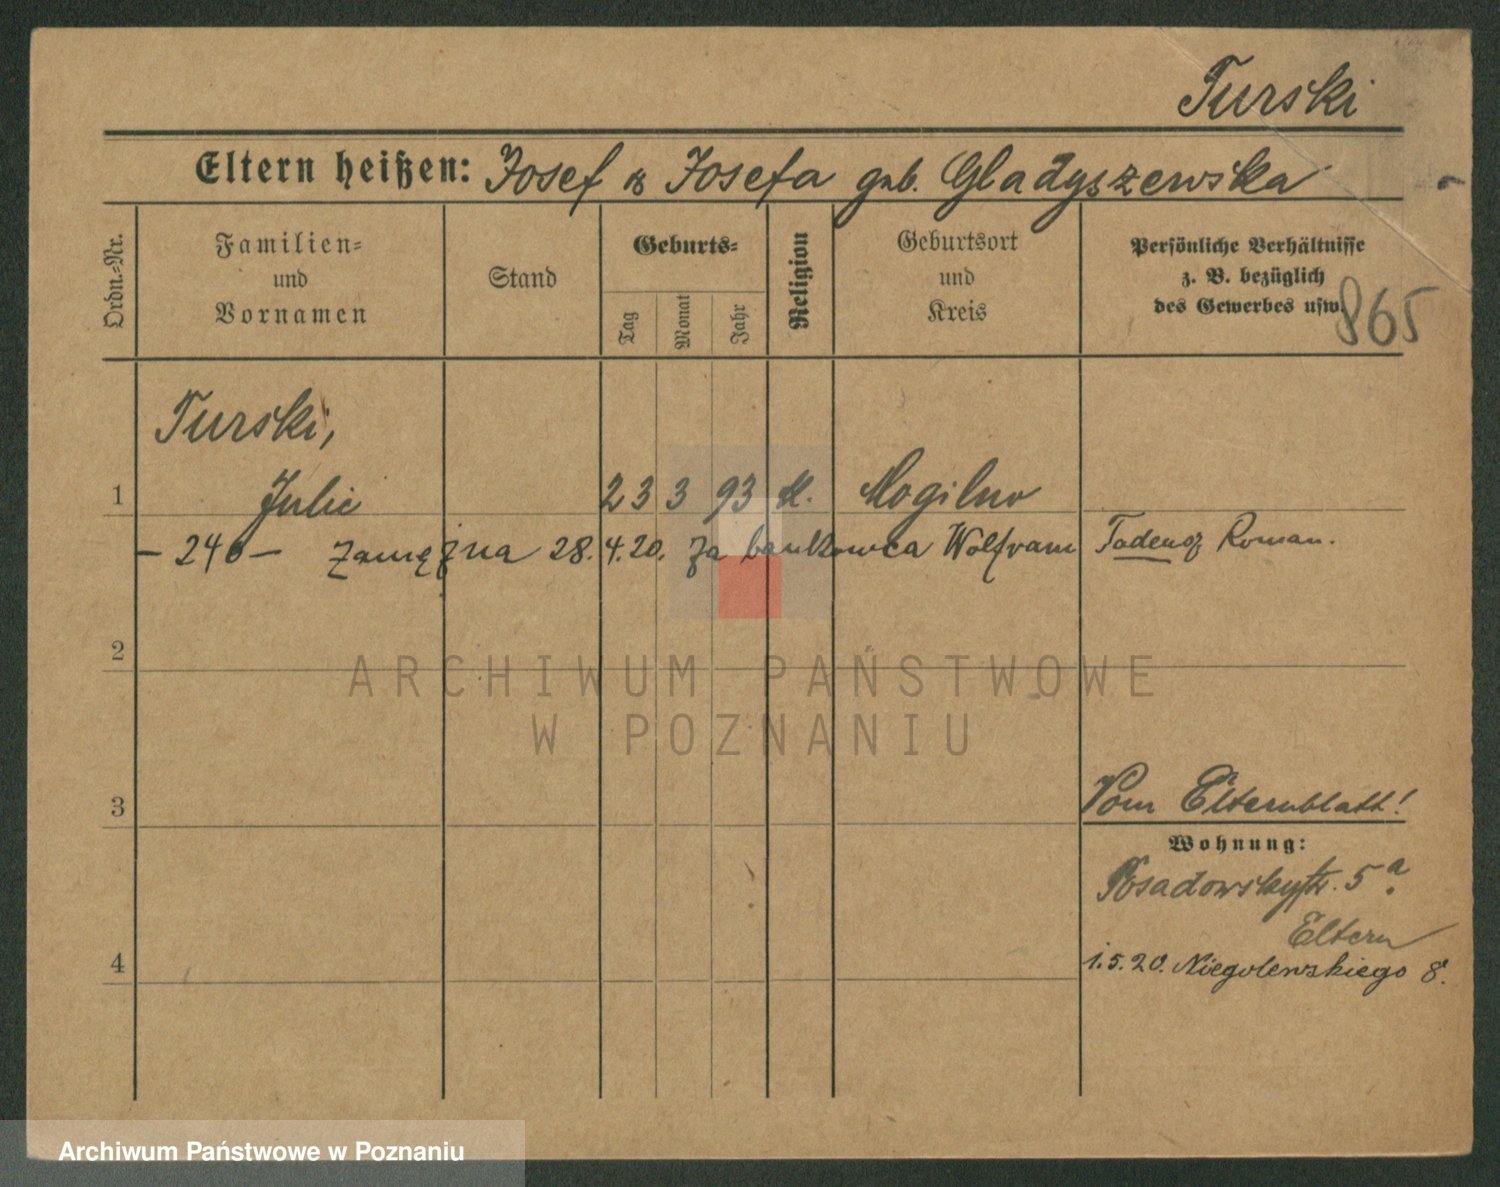 Turski
Eltern heißen: Josef & Josefa geb. Gladyszewska
Ordn.-Nr.
Familien-
und
Vornamen
Stand
Geburts-
Tag
Monat
Jahr
Religion
Geburtsort
und
Kreis
Persönliche Verhältnisse
z. B. bezüglich
des Gewerbes usw.
865
Turski,
1 Julie 23 3 93 k. Mogilno
- 240 - zamężna 28.4.20. za bankowca Wolfram Tadeusz Roman.
2
ARCHIWUM PAŃSTWOWE
W POZNANIU
Vom Elternblatt!
3
Wohnung:
Posadowskystr. 5a.
Eltern
4
1.5.20. Niegolewskiego 8.
Archiwum Państwowe w Poznaniu